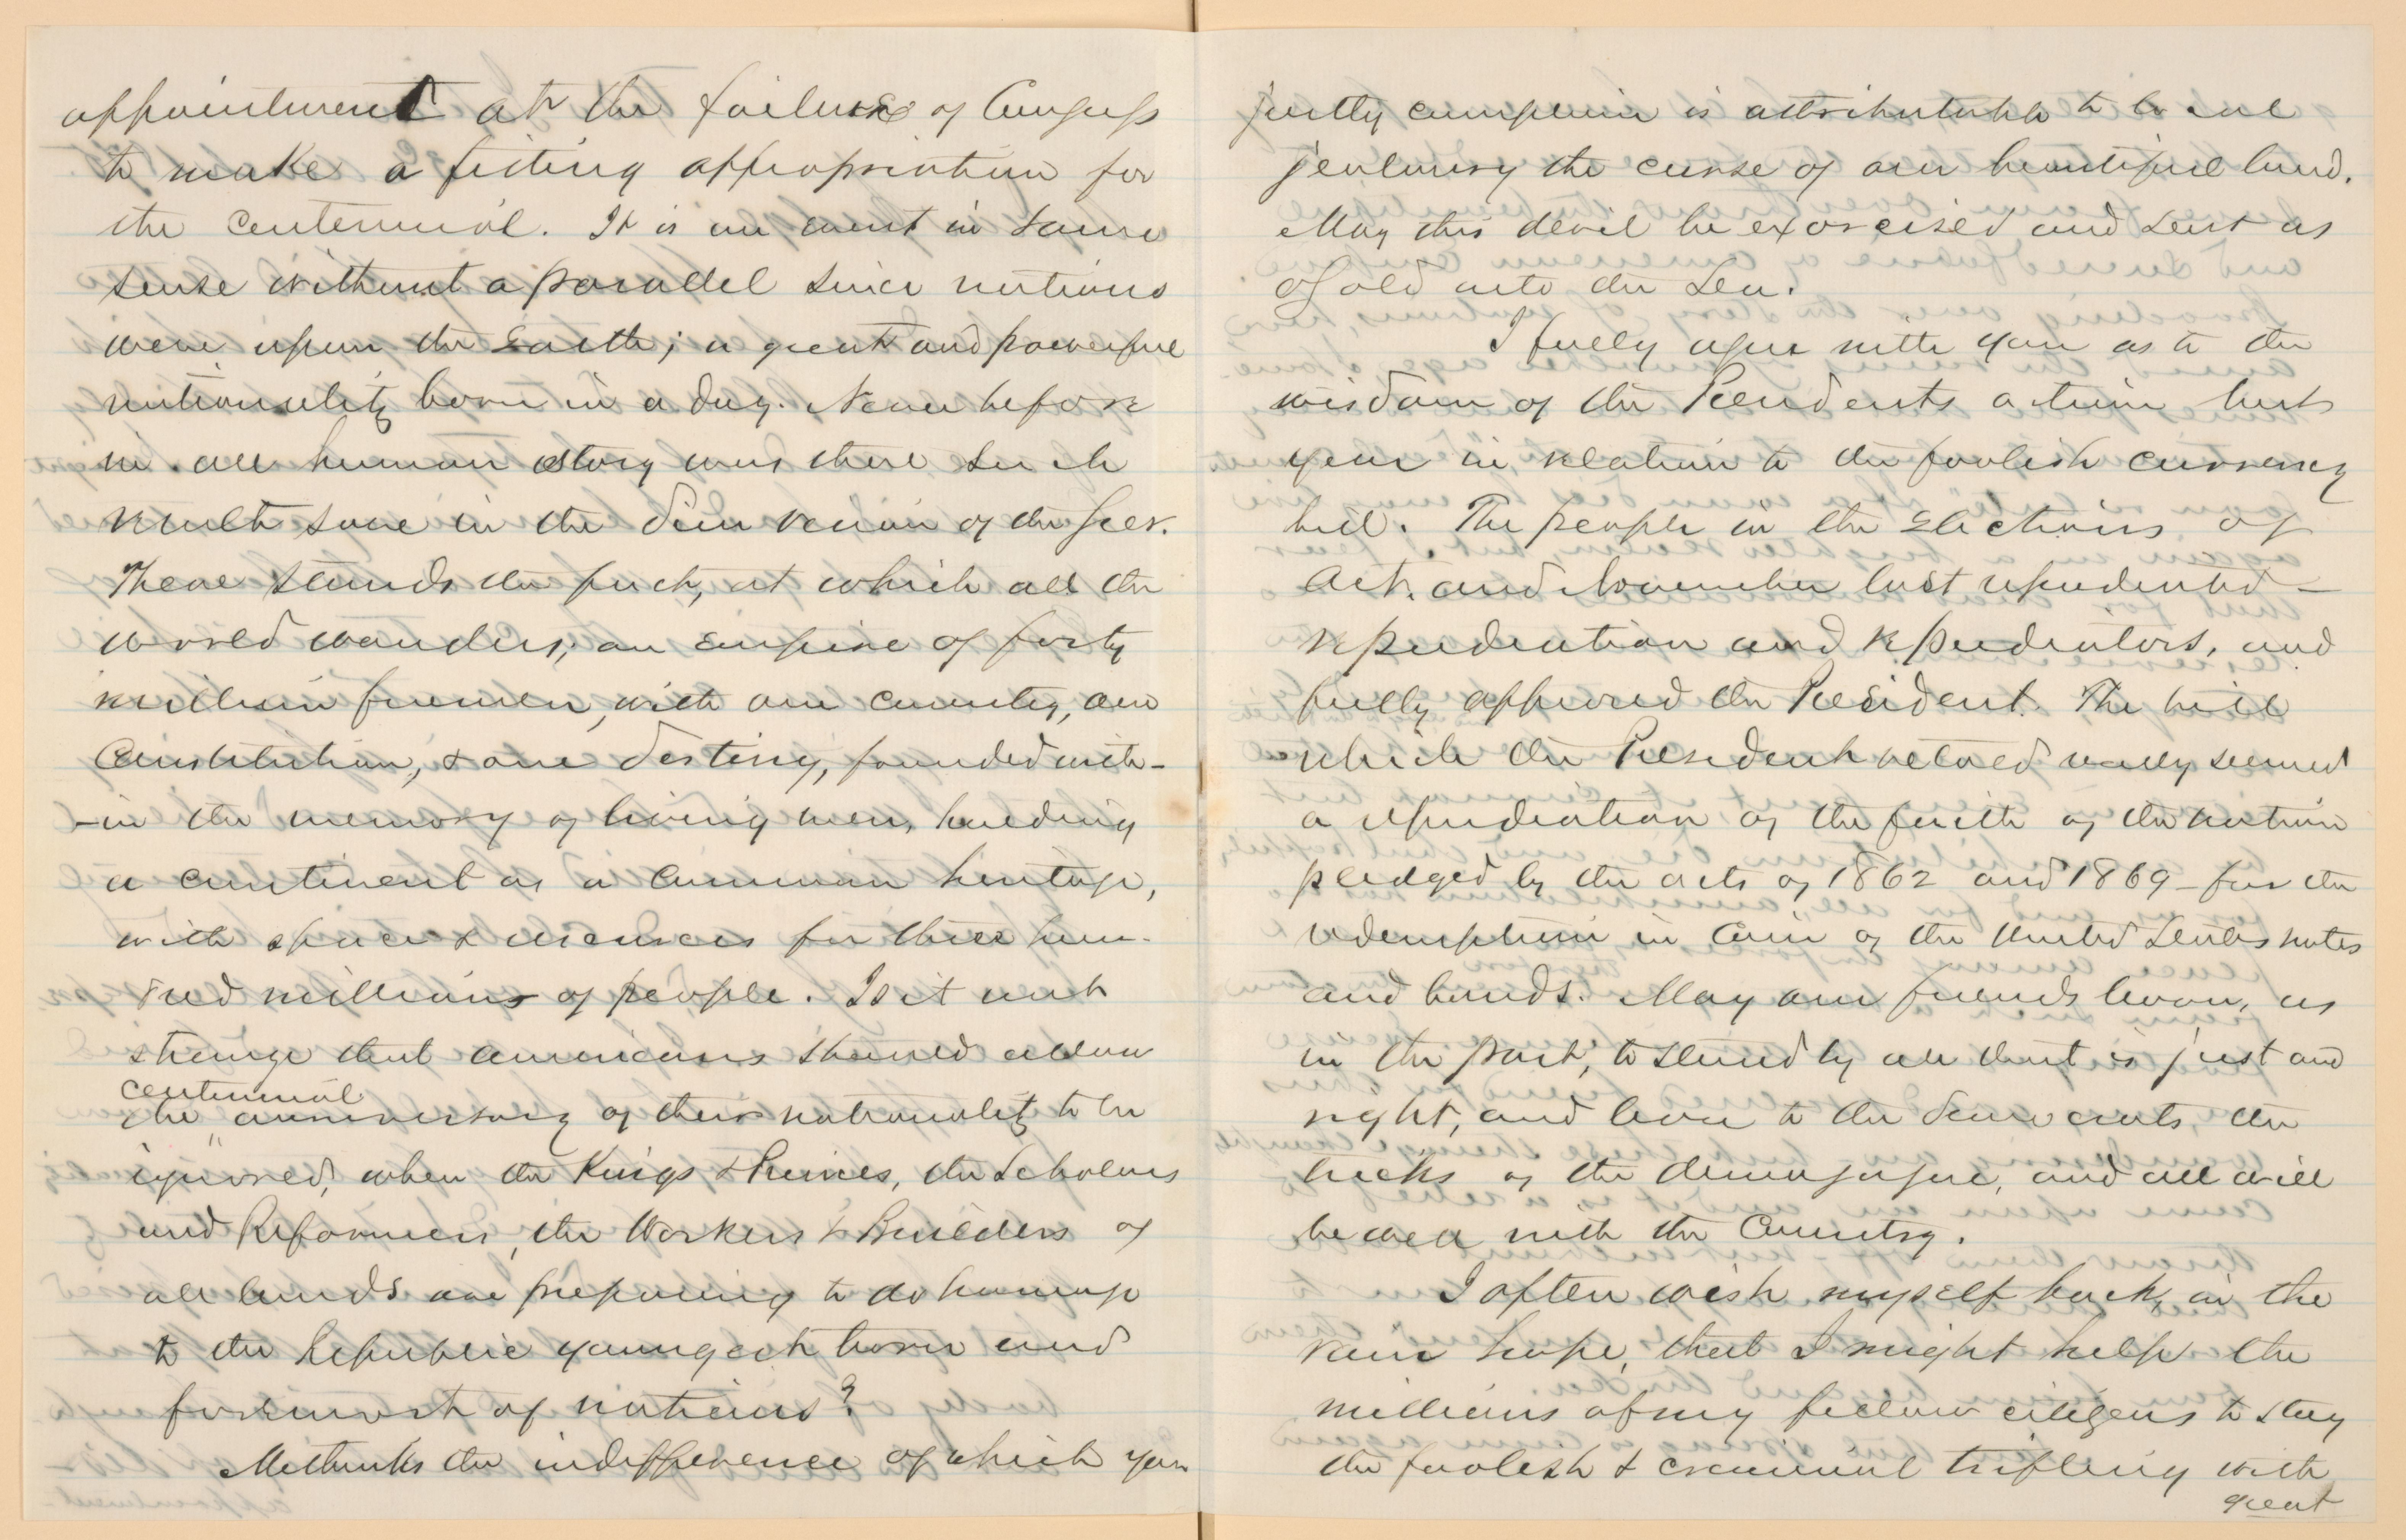 appointment at the failure of Congress
to make a fitting appropriation for
the centennial. It is an event in some
sense without a parallel since nations
were upon the Earth; a great and powerful
nationality born in a day. Never before
in all human story was there such
result save in the dim vision of the Seer.
There stands the fact, at which all the
world wonders; an Empire of forty
million freemen, with one country, one
Constitution, & one destiny, founded with-
-in the memory of living men, holding
a continent as a common heritage,
with space & resources for three hun-
dred millions of people. Is it not
strange that Americans should allow
centennial
the " anniversary of their nationality to be
ignored, when the Kings & Princes, the Scholars
and Reformers, the Workers & Builders of
all lands are preparing to do homage
to the Republic youngest born and
foremost of nations?
Methinks the indifference of which you
justly complain is attributable to local
jealousy the curse of our beautiful land.
May this devil be exorcised and sent as
of old into the Sea.
I fully agree with you as to the
wisdom of the Presidents action last
year in relation to the foolish currency
bill. The people in the Elections of
Oct. and November last repudiated —
repudiation and repudiators, and
fully approved the President. The bill
which the President vetoed really seemed
a repudiation of the faith of the nation
pledged by the acts of 1862 and 1869 – for the
redemption in Coin of the United States notes
and bonds. May our friends learn, as
in the past, to stand by all that is just and
right, and leave to the democrats the
tricks of the demagogue, and all will
be well with the Country.
I often wish myself back, in the
vain hope, that I might help the
millions of my fellow citizens to stay
the foolish & criminal trifling with
great